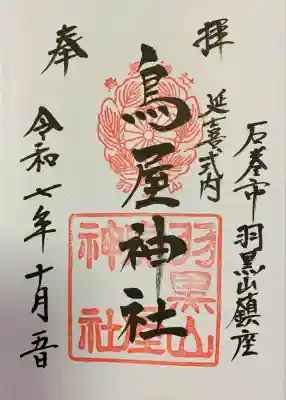 奉拝
石巻市羽黒山鎮座
延喜式内
鳥屋神社
令和七年十月五日
羽黒山
鳥屋
神社